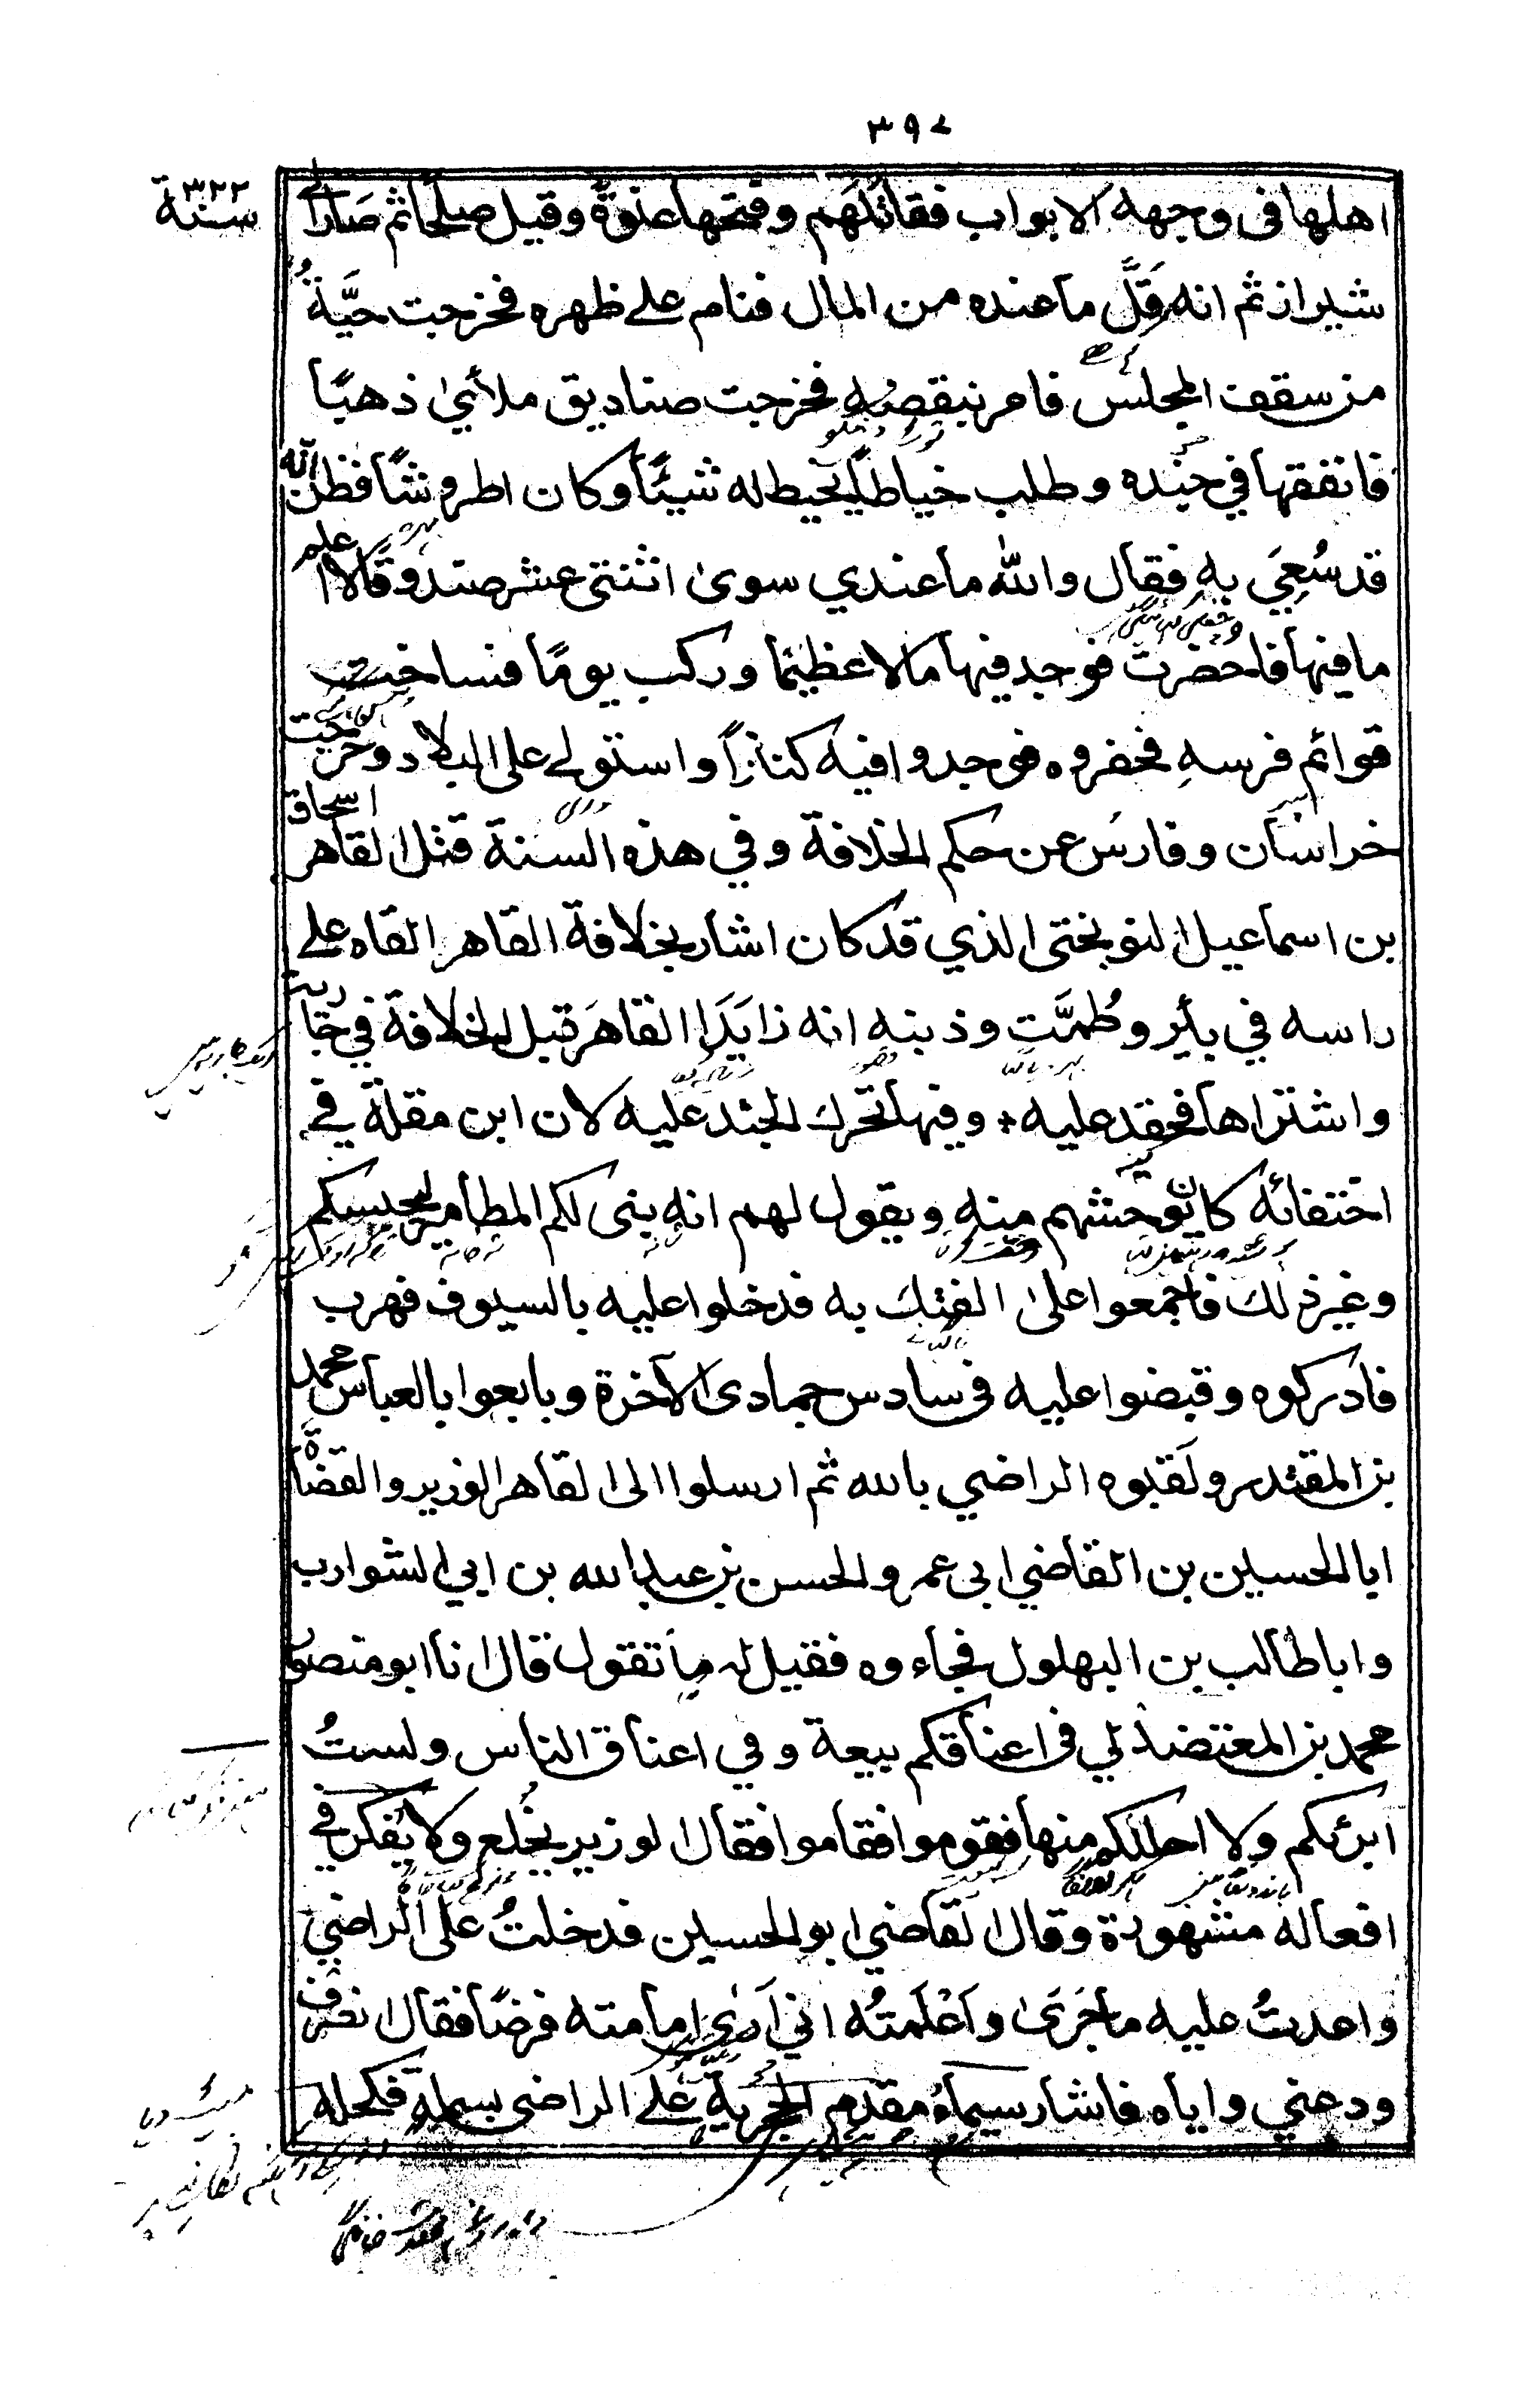 ٣٩٧
سنة ٣٢٢
اهلها فى وجهه الابواب فقاتلهم وفتحها عنوةً وقيل صلحًا ثم صار الے
شيراز ثم انه قَلَّ ما عنده من المال فنام علے ظهره فخرجت حيَّةٌ
من سقف المجلس فامر بنقضه فخرجت صناديق ملأىٰ ذهبًا
فانفقها في جنده وطلب خياطًا يخيط له شيئًا وكان اطروشًا فظن انه
قد سُعِيَ به فقال والله ما عندي سوىٰ اثنتى عشر صندوقًا لا اعلم
ما فيها فاحضرت فوجد فيها مالا عظيمًا وركب يومًا فساخت
قوائم فرسهِ فحفروه فوجدوا فيه كنزًا واستولے على البلاد وخرجت
خراسان وفارس عن حكم الخلافة وفي هذه السنة قتل القاهر اسحاق
بن اسماعيل النوبختى الذي قد كان اشار بخلافة القاهر القاه علے
راسه في بئرٍ وطُمَّت وذنبه انه زايَدَ القاهرَ قبل الخلافة في جارية
واشتراها فحقد عليه + وفيها تحرك الجند عليه لان ابن مقلة في
اختفائه كان يوحشهم منه ويقول لهم انه بنى لكم المطامير ليحبسكم
وغير ذلك فاجمعوا علىٰ الفتك به فدخلوا عليه بالسيوف فهرب
فادركوه وقبضوا عليه فى سادس جمادى الآخرة وبايعوا بالعباس محمد
بن المقتدر ولقبوه الراضي بالله ثم ارسلوا الى القاهر الوزير والقضاة
ابا الحسين بن القاضي ابى عمر والحسن بن عبد الله بن ابي الشوارب
وابا طالب بن البهلول فجاءوه فقيل له ما تقول قال انا ابو منصور
محمد بن المعتضد لي فى اعناقكم بيعة وفي اعناق الناس ولستُ
ابرئكم ولا احللكم منها فقوموا فقاموا فقال الوزير يخلع ولا يفكر في
افعاله مشهورة وقال القاضي ابو الحسين فدخلتُ على الراضي
واعدتُ عليه ما جَرَىٰ واَعْلَمتُه اني اَرىٰ امامته فرضًا فقال انصرف
ودعني واياه فاشار سيماءُ مقدم الحجرية علے الراضى بسمله فكحله